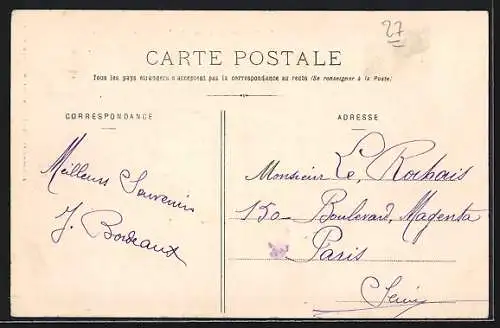 27
CARTE POSTALE
Tous les pays étrangers n'acceptent pas la correspondance au recto (Se renseigner à la Poste)
CORRESPONDANCE
ADRESSE
Meilleurs Souvenirs
J. Bordeaux
Monsieur Le Rochais
150 Boulevard Magenta
Paris
Seine